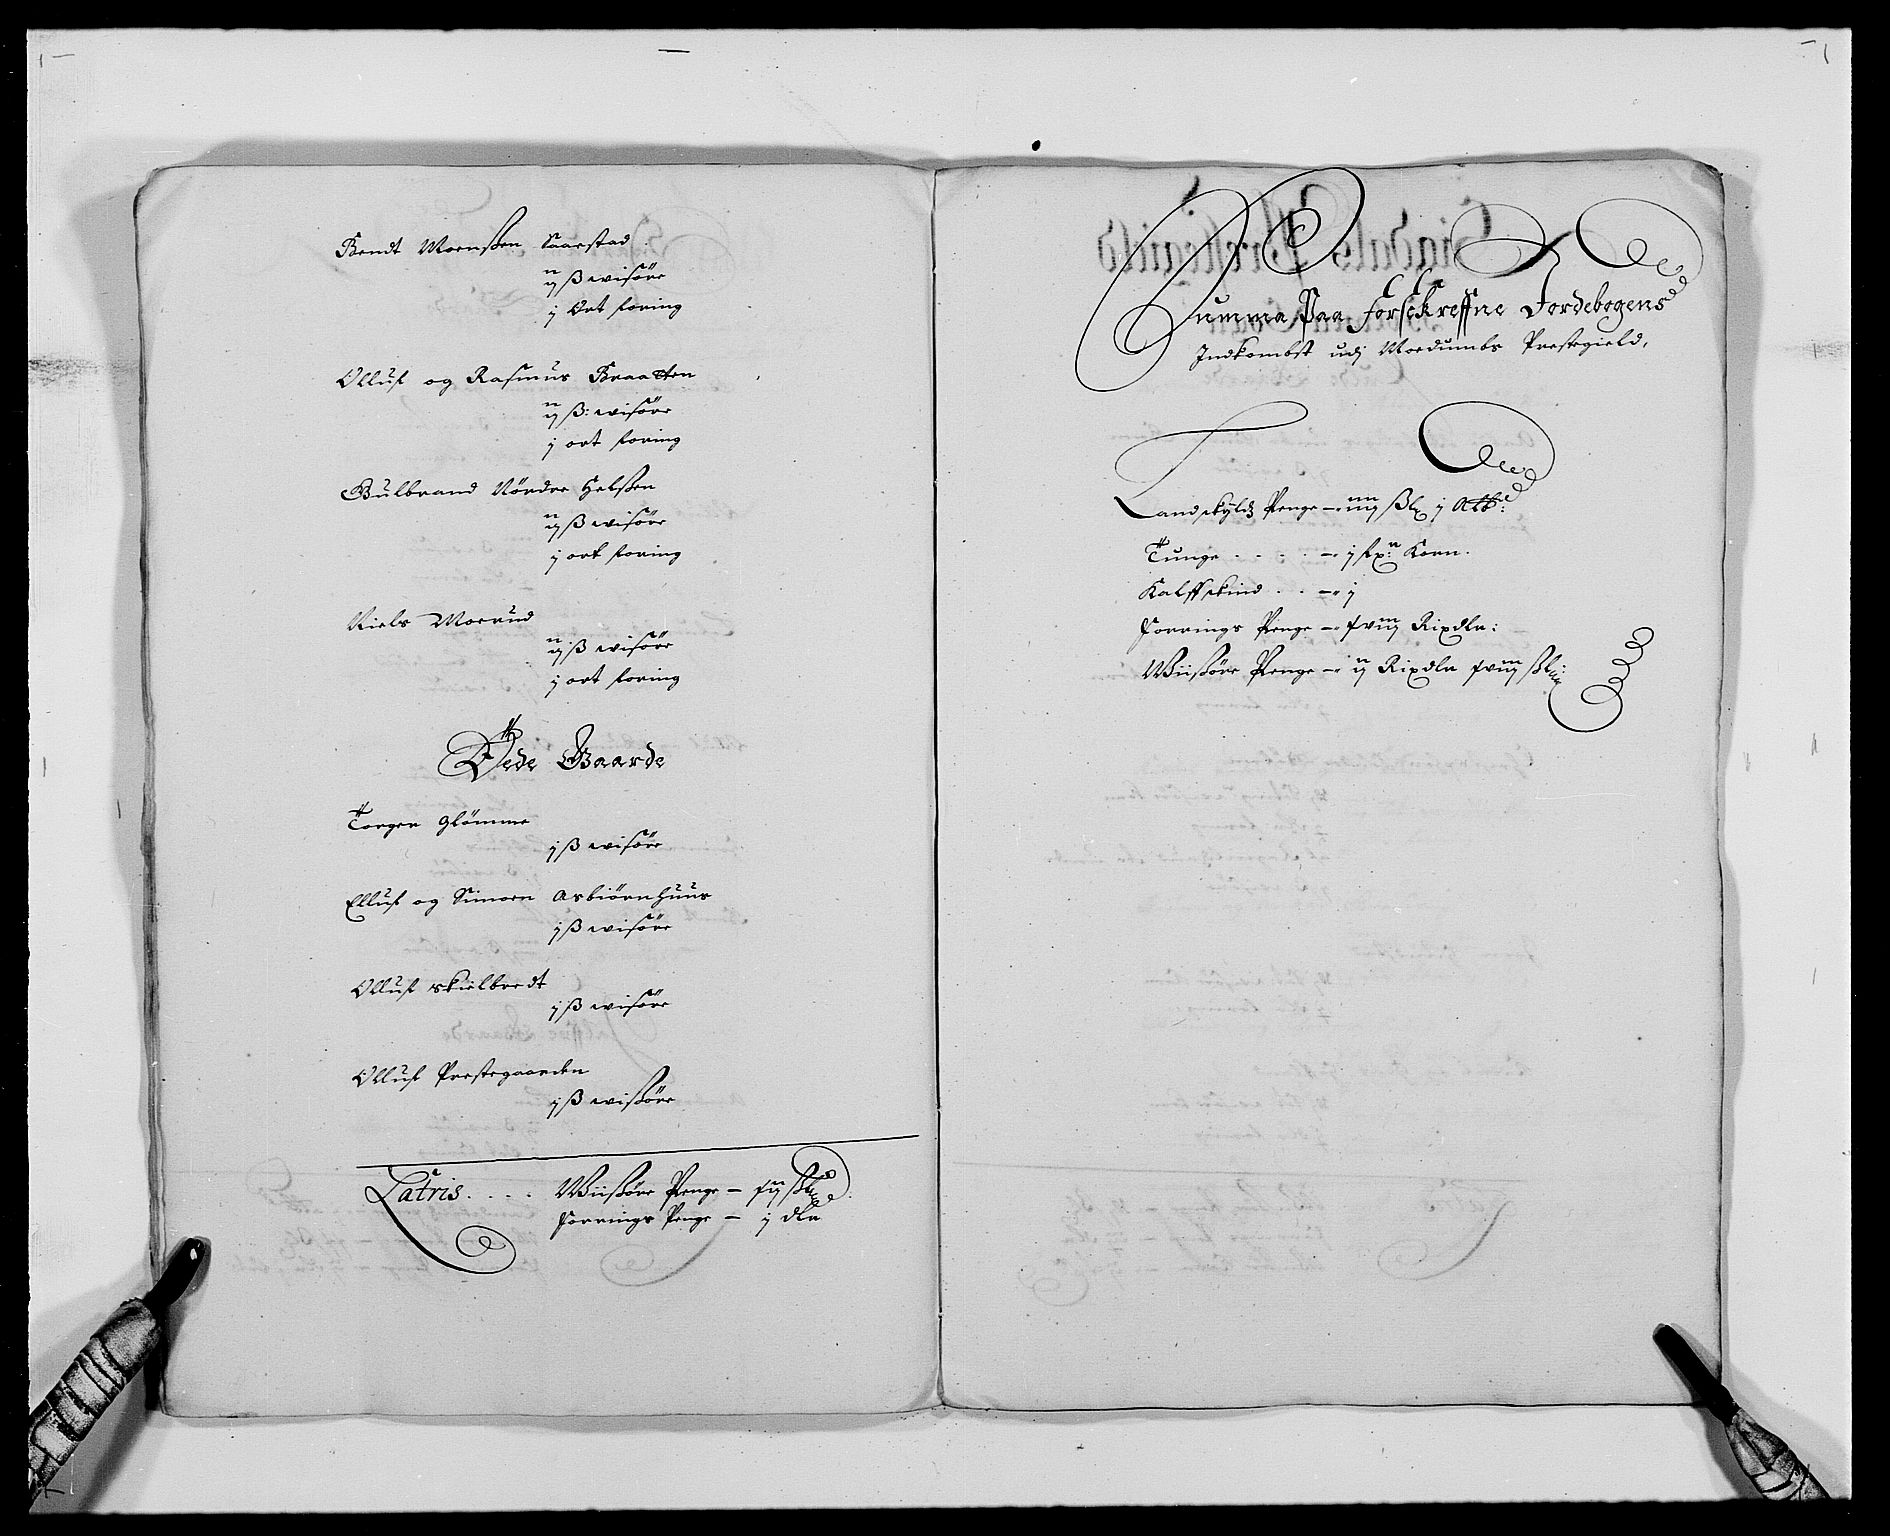 Bendt Moenßen Saarstad
ij ß wisöre
j Ort foring
Olluf og Rasmus Braatten
ij ß: wisöre
j ort foring
Gulbrand Nörder Helßen
ij ß wisöre
j ort foring
Niels Moerud
ij ß wisöre
j ort foring
Øede Gaarde
Torger Glömme
j ß wisöre
Elluf og Simoen Asbiörnhuus
j ß wisöre
Olluf skielbredt
j ß wisöre
Olluf Prestegaarden
j ß wißöre
Latris.... Wiißöre Penge –
Forrings Penge – j dlr
Summa Paa forsckreffne Jordebogens
Indkombst udj Moedumbs Prestegield,
Landskyldz Penge – iiij ßl j
Tunge . . . . – j Korn.
Kalffskind . . – j
Forrings Penge – xviij Rixdlr:
Wiißöre Penge – ij Rixdlr xviij ßl: